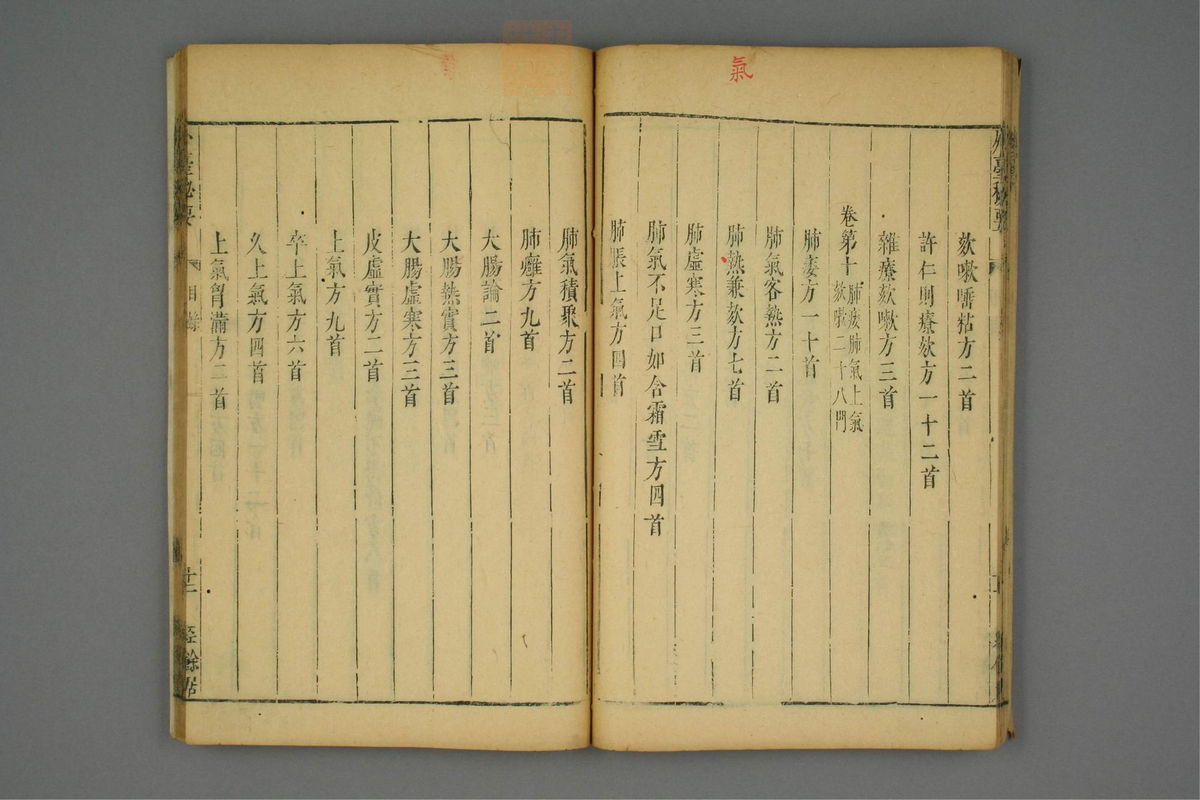 氣
欬嗽膿粘方二首
許仁則療欬方一十二首
雜療欬嗽方三首
卷第十
肺痿肺氣上氣
欬嗽二十八門
肺痿方一十首
肺氣客熱方二首
肺熱兼欬方七首
肺虛寒方三首
肺氣不足口如含霜雪方四首
肺脹上氣方四首
肺氣積聚方二首
肺癰方九首
大腸論二首
大腸熱實方三首
大腸虛寒方三首
皮虛實方二首
上氣方九首
卒上氣方六首
久上氣方四首
上氣胷滿方二首
臺秘要
目錄
十二
經餘居